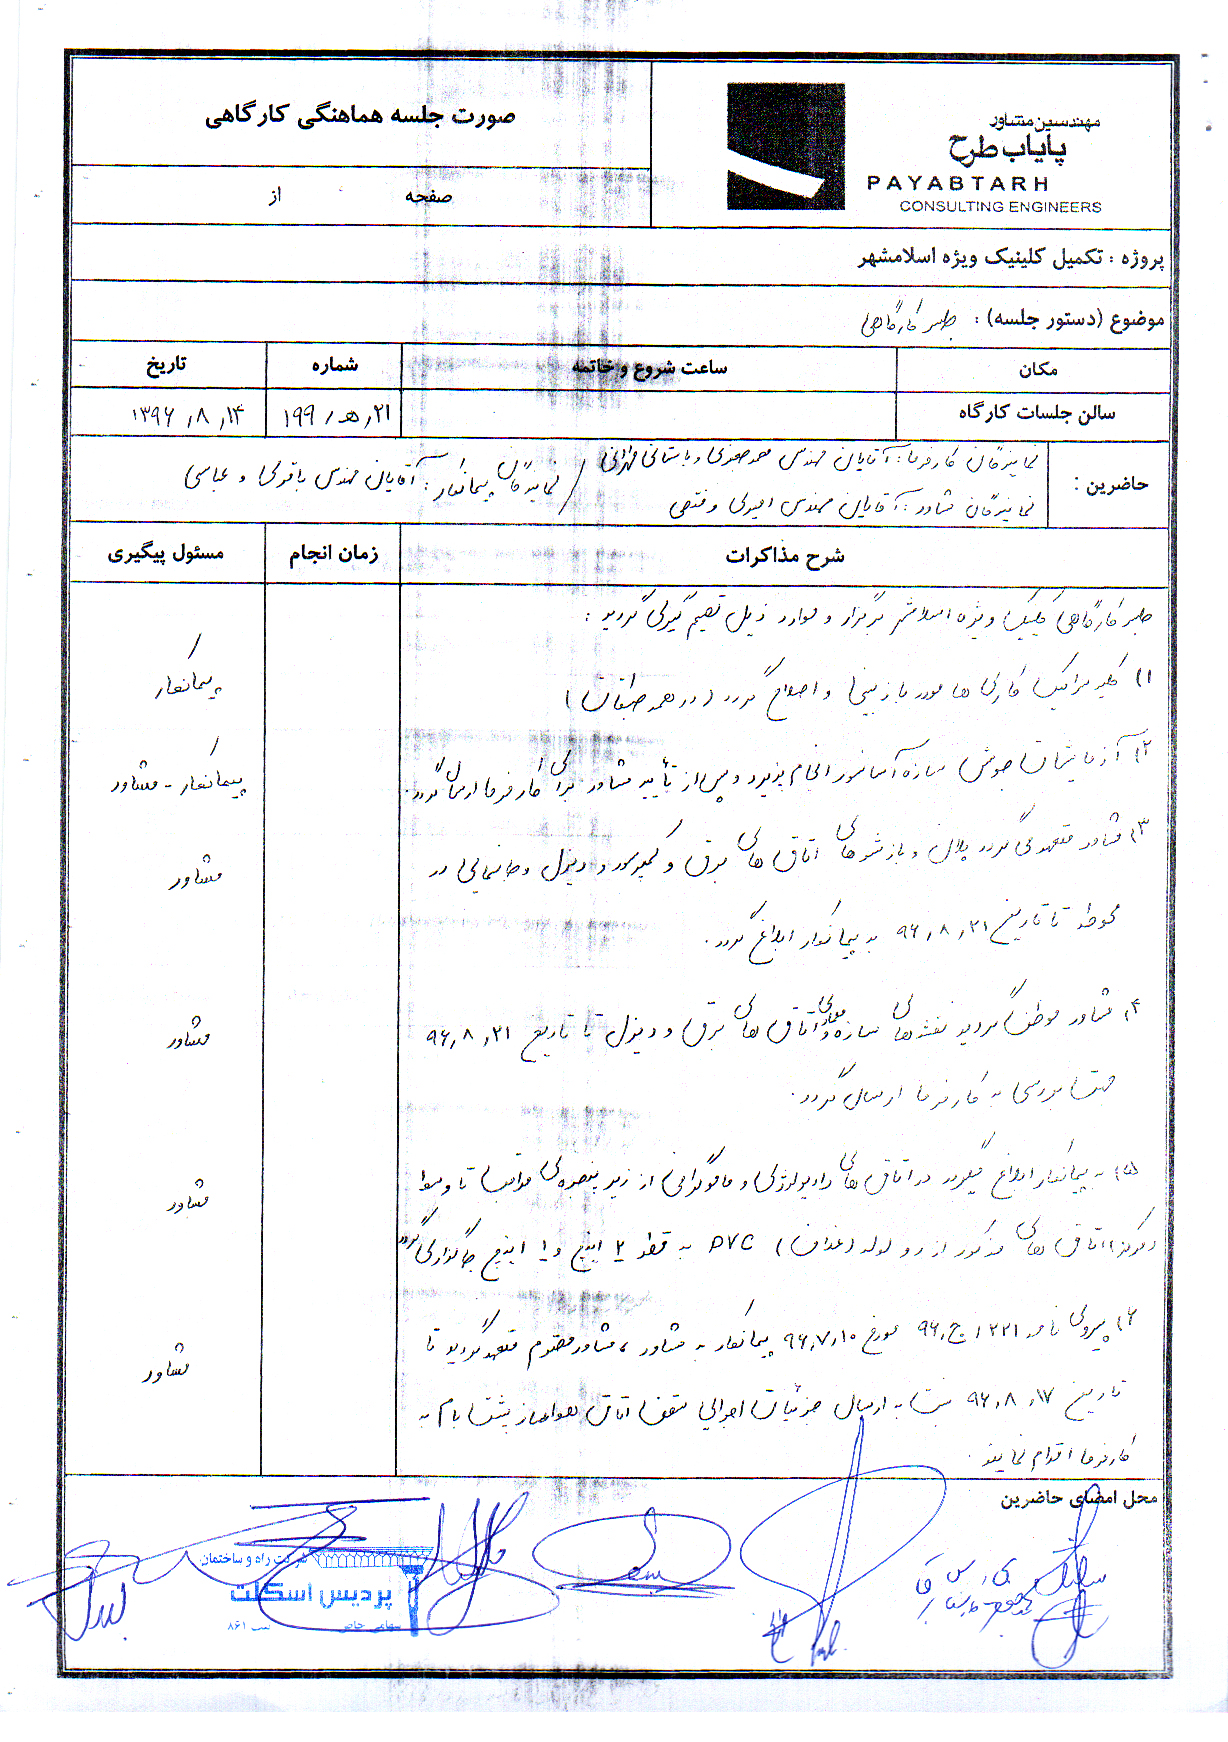 مهندسین مشاور
پایاب طرح
PAYABTARH
CONSULTING ENGINEERS
صورت جلسه هماهنگی کارگاهی
صفحه از
پروژه : تکمیل کلینیک ویژه اسلامشهر
موضوع (دستور جلسه) : جلسه کارگاهی
مکان ساعت شروع و خاتمه شماره تاریخ
سالن جلسات کارگاه ۱۹۹/هـ/۲۱ ۱۳۹۶/۸/۱۴
حاضرین :
نمایندگان کارفرما : آقایان مهندس محمد صفری و باستانی تهرانی
نمایندگان مشاور : آقایان مهندس امیری و فتحی
/ نمایندگان پیمانکار : آقایان مهندس باقری و عباسی
شرح مذاکرات زمان انجام مسئول پیگیری
جلسه کارگاهی کلینیک ویژه اسلامشهر برگزار و موارد ذیل تصمیم گیری گردید :
۱) کلیه سرامیک کاری ها مورد بازبینی و اصلاح گردد (در همه طبقات) پیمانکار
۲) آزمایشات جوش سازه آسانسور انجام پذیرد و پس از تأیید مشاور برای کارفرما ارسال گردد. پیمانکار - مشاور
۳) مشاور متعهد می گردد پلان و بازشوهای اتاق های برق و کمپرسور و دیزل و جانمایی در مشاور
محوطه تا تاریخ ۹۶/۸/۲۱ به پیمانکار ابلاغ گردد.
۴) مشاور موظف گردید نقشه های سازه و معماری اتاق های برق و دیزل تا تاریخ ۹۶/۸/۲۱ مشاور
جهت بررسی به کارفرما ارسال گردد.
۵) به پیمانکار ابلاغ میگردد در اتاق های رادیولوژی و ماموگرافی از زیر پنجره ی مراقبت تا وسط مشاور
(مرکز) اتاق های مذکور از دو لوله (غلاف) PVC به قطر ۲ اینچ و ۱ اینچ جاگذاری گردد
۶) پیروی نامه ۲۲۱/ج/۹۶ مورخ ۹۶/۷/۱۰ پیمانکار به مشاور ، مشاور محترم متعهد گردید تا مشاور
تاریخ ۹۶/۸/۱۷ نسبت به ارسال جزئیات اجرایی سقف اتاق هواساز پشت بام به
کارفرما اقدام نماید.
محل امضای حاضرین
شرکت راه و ساختمان
پردیس اسکلت
سهامی خاص ثبت ۸۶۱